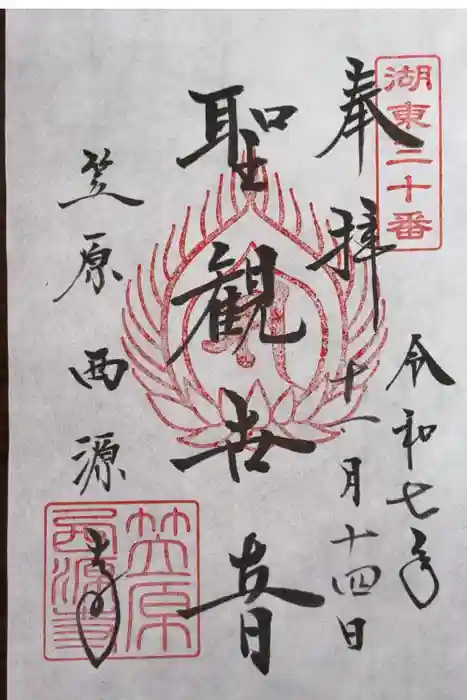 湖東二十番
奉拝
令和七年
十一月十四日
聖観世音
笠原西源寺
笠原
西源寺